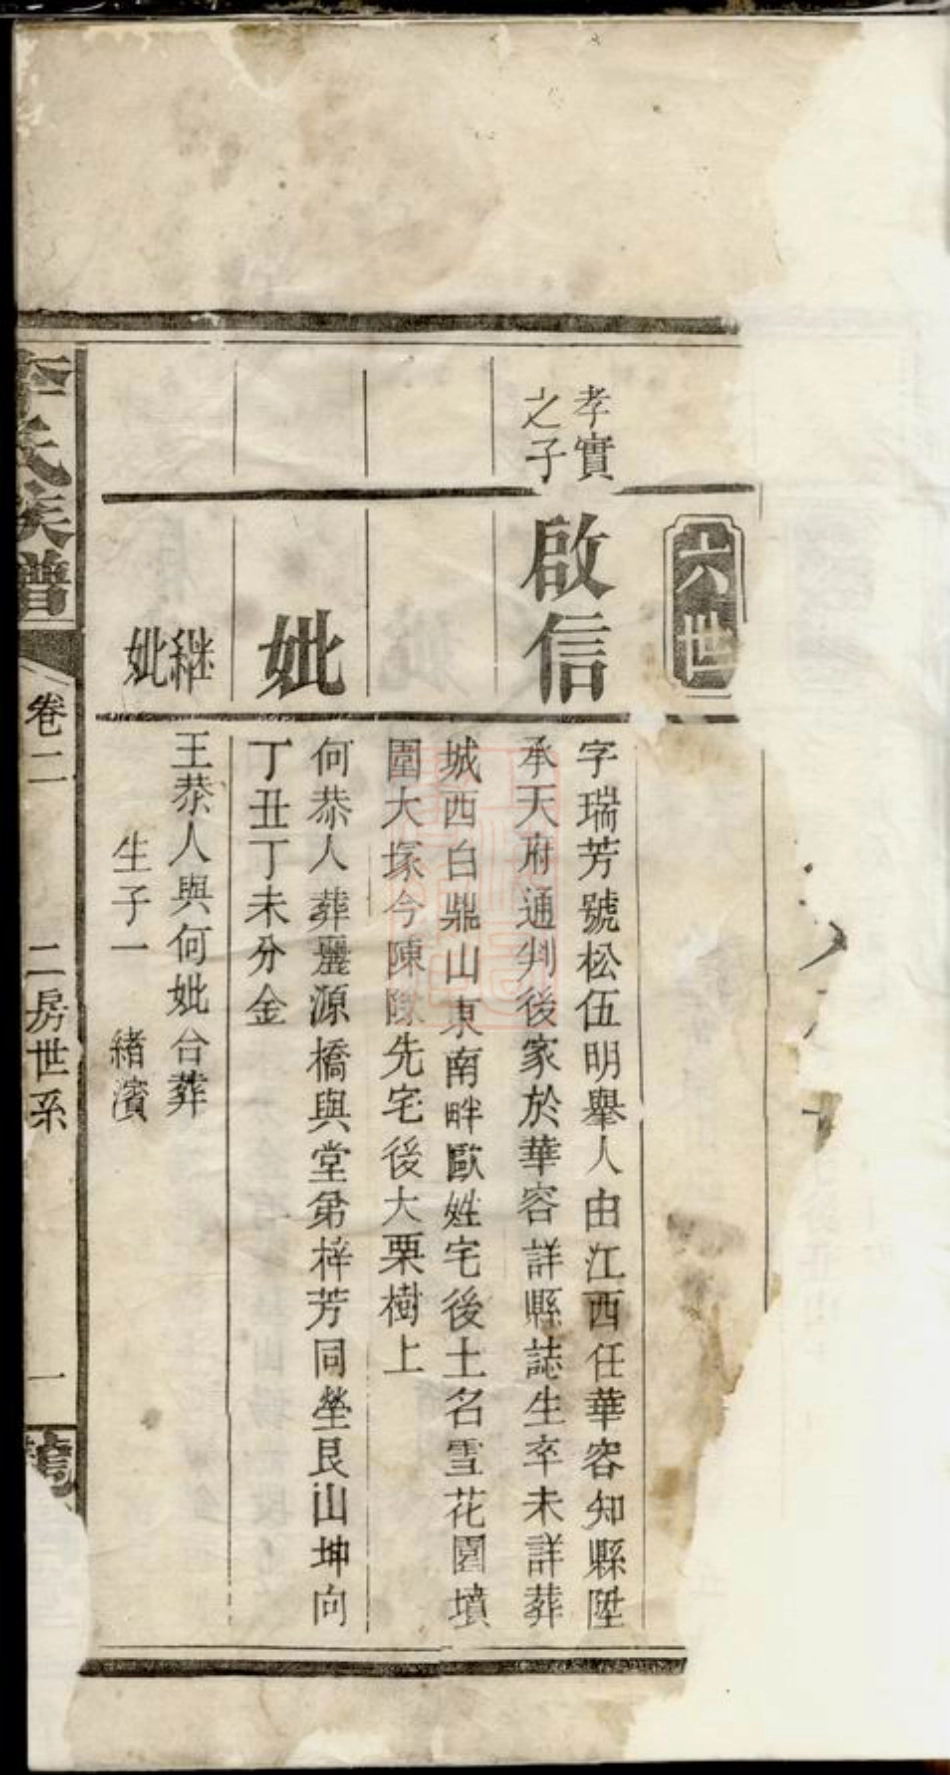 六世
孝實
之子
啟信
字瑞芳號松伍明舉人由江西任華容知縣陞
承天府通判後家於華容詳縣誌生卒未詳葬
城西白鼎山東南畔歐姓宅後土名雪花園墳
圍大塚今陳陳先宅後大栗樹上
妣
何恭人葬麗源橋與堂弟梓芳同塋艮山坤向
丁丑丁未分金
繼
妣
王恭人與何妣合葬
生子一 緒濱
李氏族譜 卷二 二房世系 一